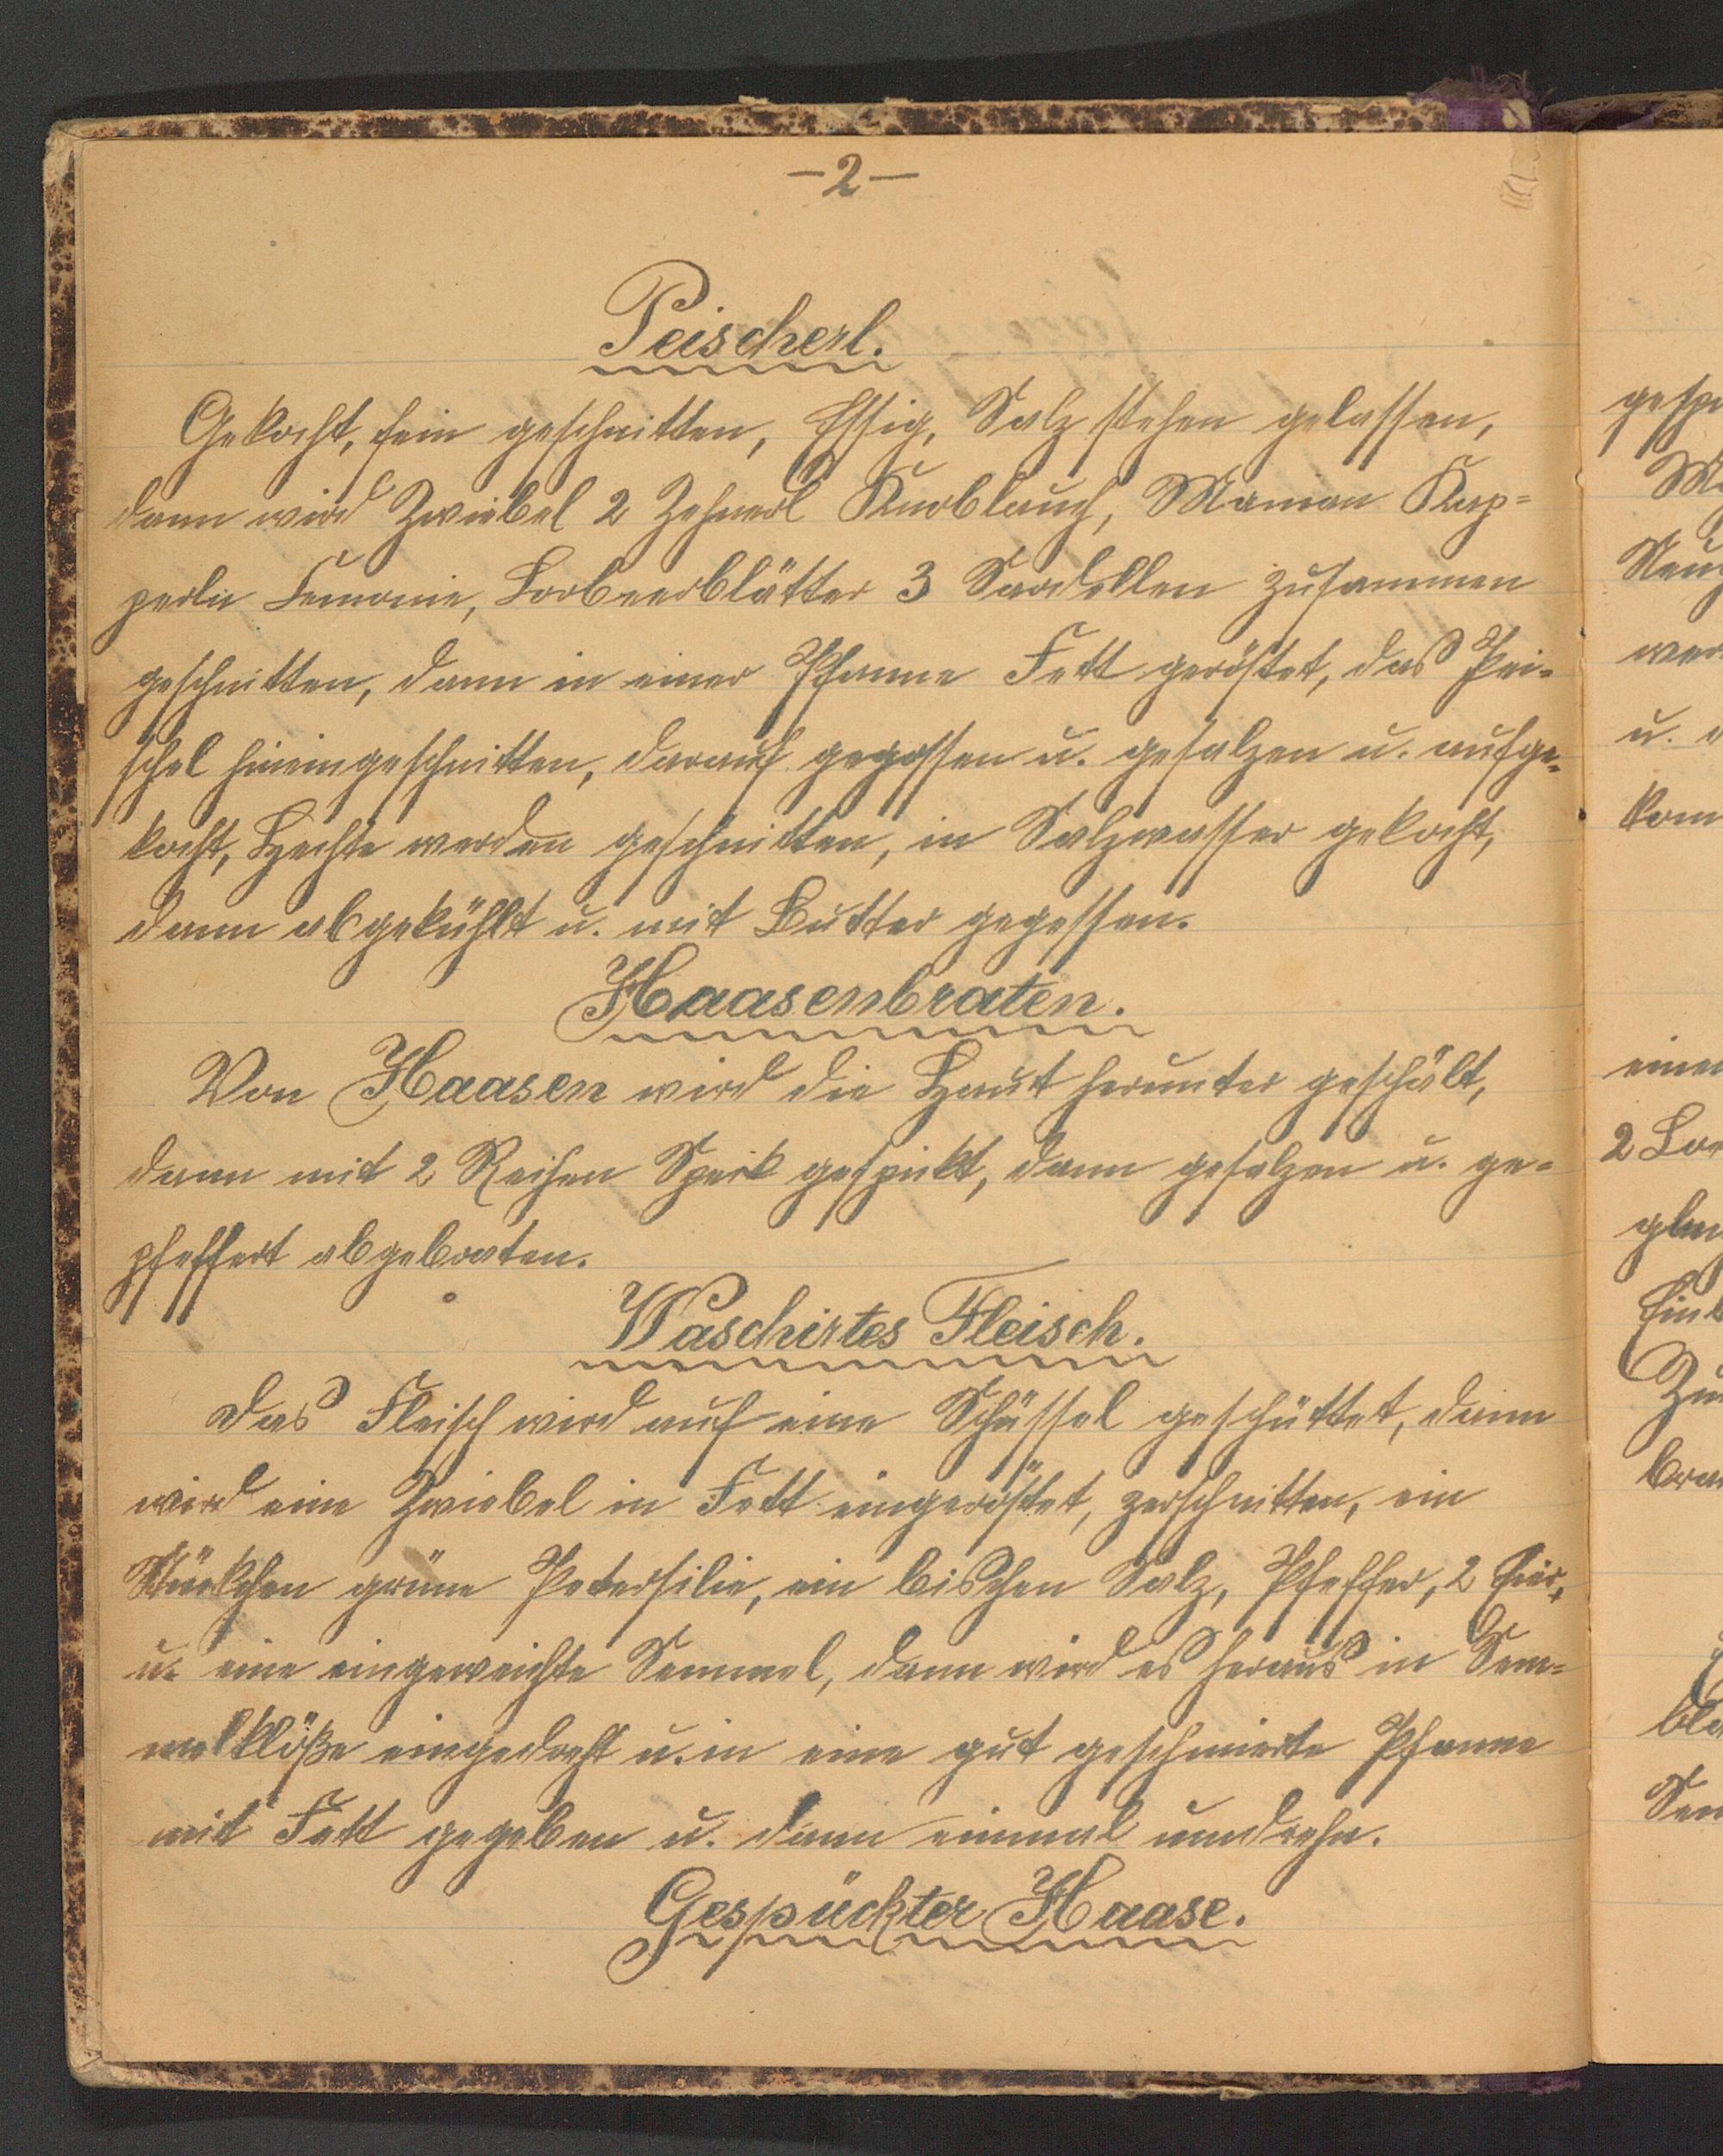 -2-
Peischerl.
Gekocht, fein geschnitten, Essig, Salz stehen gelassen,
dann wird Zwiebel 2 Zehnerl Knoblauch, Kap=
perln Lemonie, Lorbeerblätter 3 Sardellen zusammen
geschnitten, dann in einer Pfanne Fett geröstet, das Pei=
schel hineingeschnitten, darauf gegossen u. gesalzen u. aufge=
kocht, Hechte werden geschnitten, in Salzwasser gekocht,
dann abgekühlt u. mit Butter gegessen.
Haasenbraten.
Von Haasen wird die Haut herunter geschält,
dann mit 2 Reihen Speck gespickt, dann gesalzen u. ge=
pfeffert abgebraten.
Waschirtes Fleisch.
Das Fleisch wird auf eine Schüssel geschüttet, dann
wird eine Zwiebel in Fett eingeröstet, zerschnitten, ein
Stückchen grüne Petersilie, ein bischen Salz, Pfeffer, 2 Eier,
u. eine eingeweichte Semmel, dann wird es heraus in Sem=
melklöße eingedreht u. in eine gut geschmierte Pfanne
mit Fett gegeben u. dann einmal umdrehn.
Gespückter Haase.